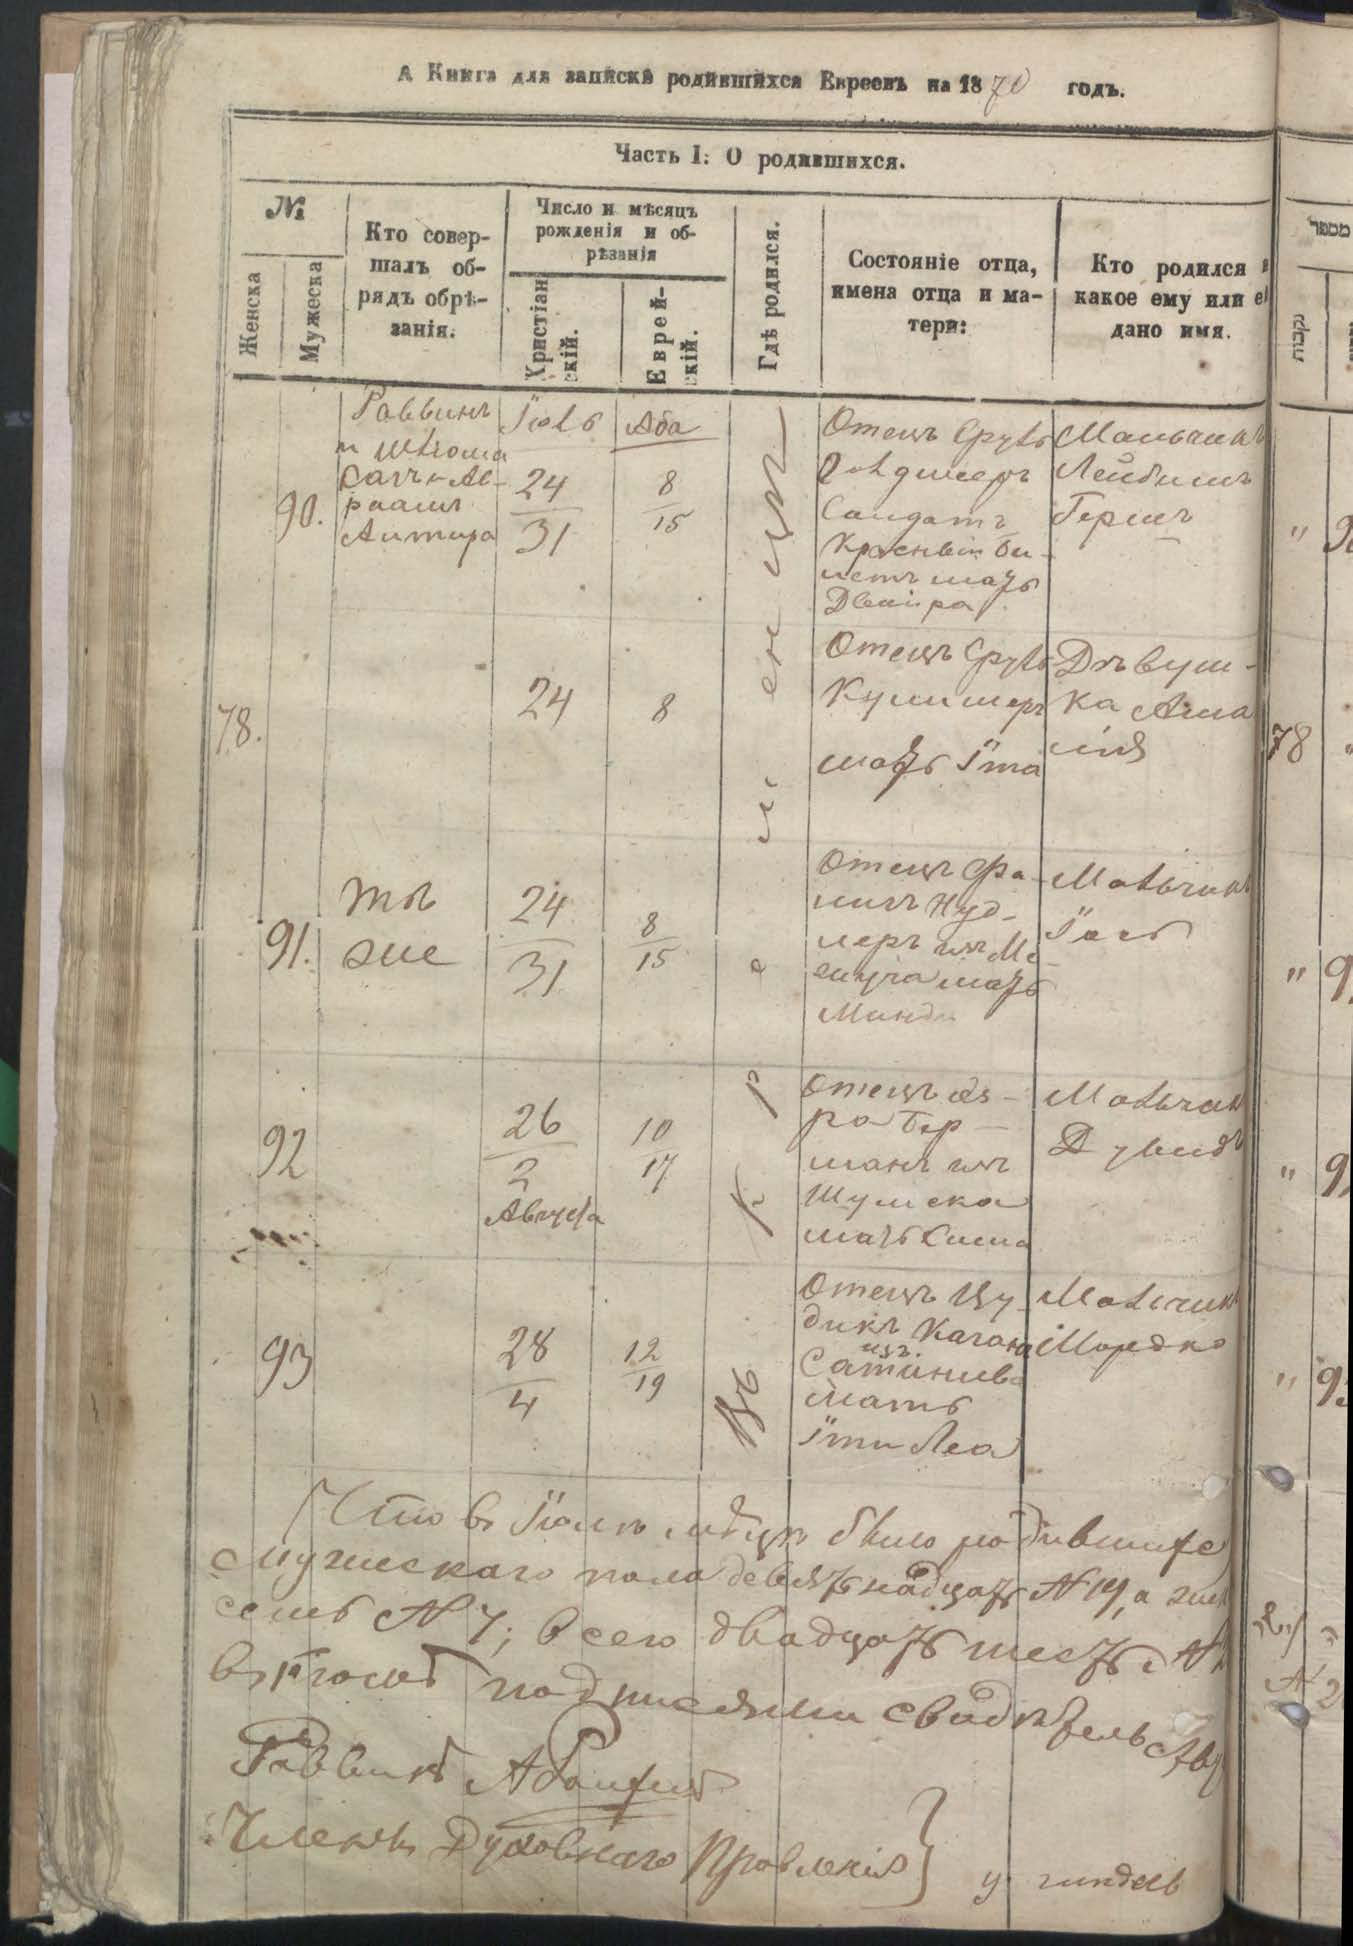 А Книга для записки родившихся Евреевъ на 1870 годъ.
Часть I: О родившихся.
№
Женска
Мужеска
Кто совер-
шалъ об-
рядъ обрѣ-
занія.
Число и мѣсяцъ
рожденія и об-
рѣзанія
Христіан
скій.
Еврей-
скій.
Гдѣ родился.
Состояніе отца,
имена отца и ма-
тери:
Кто родился и
какое ему или е
дано имя.
מספר
נקבות
Въ кременцѣ
90.
Раввинъ
и
Ав-
раамъ
Іюль
24
31
Аба
8
15
Отецъ Сруль
Солдатъ
Красный би-
летъ мать
Двойра
Мальчикъ
Лейбишъ
Гершъ
" 9
78.
24
8
Отецъ Сруль
Кушмеръ
мать Іта
Дѣвуш-
ка
78
91.
тѣ
же
24
31
8
15
Отецъ Фа-
Нуд-
леръ изъ
мать
Минди
Мальчикъ
Іось
" 9
92
26
2
Августа
10
17
Отецъ
Гер-
манъ изъ
Шумска
мать Сима
Мальчикъ
Дувидъ
" 9
93
28
4
12
19
Отецъ Цу-
дикъ Каганъ
изъ
мать
Іти Леа
Мальчикъ
Мордко
" 9
Что въ Іюлѣ мѣсяцѣ было родившихся
мужескаго пола девятьнадцать № 19, а жен
семь № 7; всего двадцать шесть №
въ томъ подписями свидѣтель
Раввинъ
Члены Духовнаго Правленія